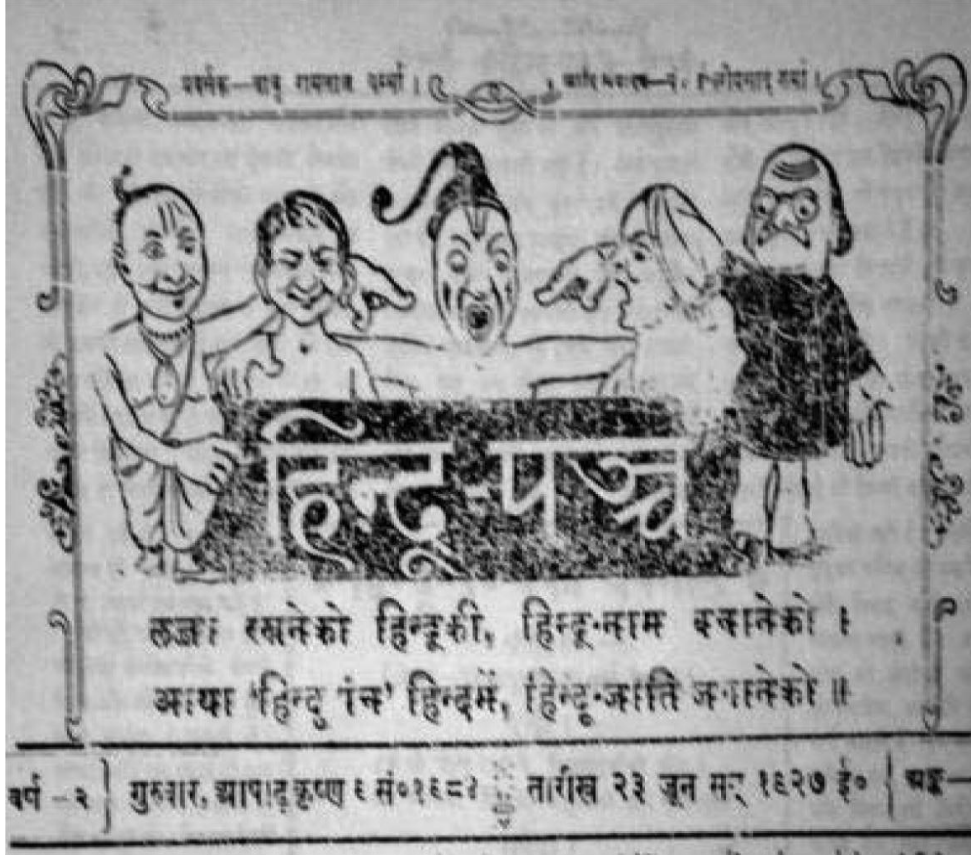 प्रवर्त्तक—बाबू रामलाल वर्म्मा।
हिन्दू-पञ्च
लज्जा रखनेको हिन्दूकी, हिन्दू-नाम बचानेको।
आया 'हिन्दू पंच' हिन्दमें, हिन्दू-जाति जगानेको॥
वर्ष -२
गुरुवार, आषाढ़ कृष्ण ९ सं०१९८४
तारीख २३ जून सन् १९२७ ई०
अङ्क—